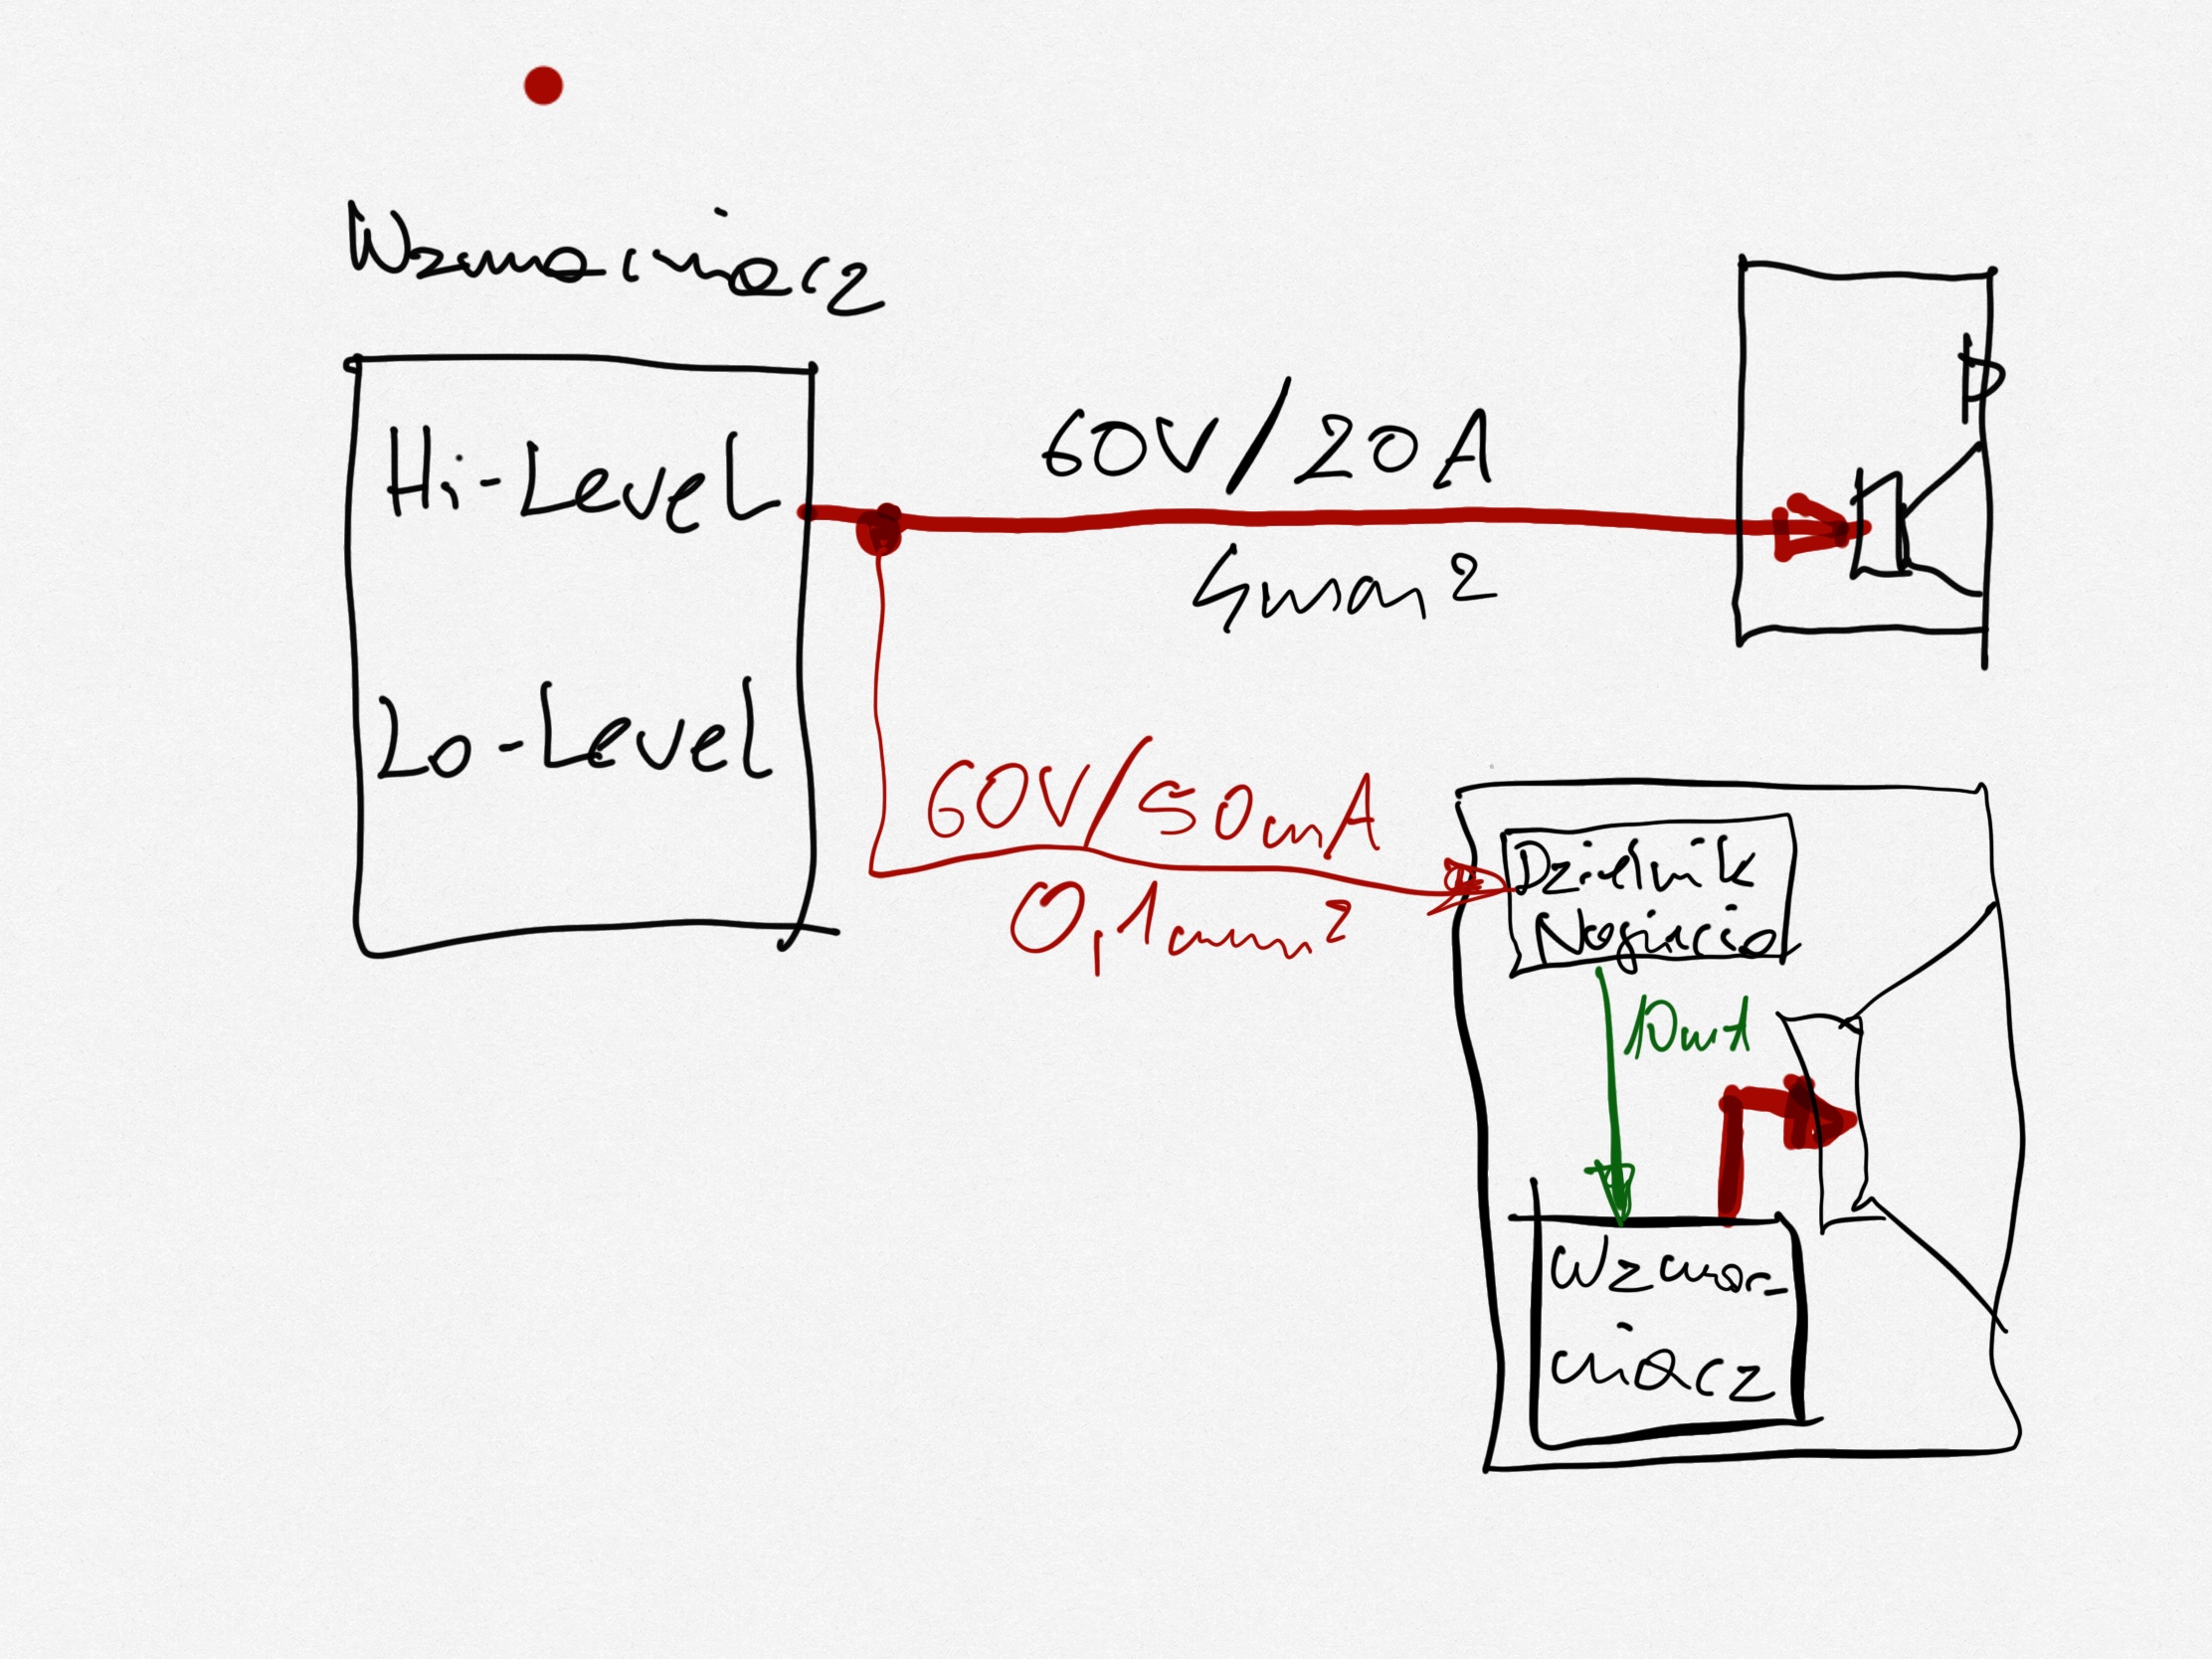 Wzmacniacz
Hi-Level
60V/20A
4mm²
Lo-Level
60V/50mA
0,1mm²
Dzielnik
Napięcia
10mA
Wzmac-
niacz